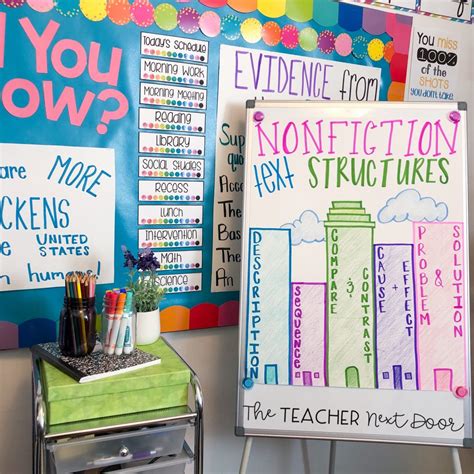 d You
ow?
are MORE
CKENS
in the
UNITED
STATES
n human!
Today's Schedule
Morning Work
Morning Meeting
Reading
Library
Social Studies
Recess
Lunch
Intervention
Math
Science
EVIDENCE
from
Acco
The
Bas
The
an
You miss
100%
of the
SHOTS
you don't take
NONFICTION
text STRUCTURES
DESCRIPTION
SEQUENCE
COMPARE & CONTRAST
CAUSE + EFFECT
PROBLEM & SOLUTION
The TEACHER Next Door